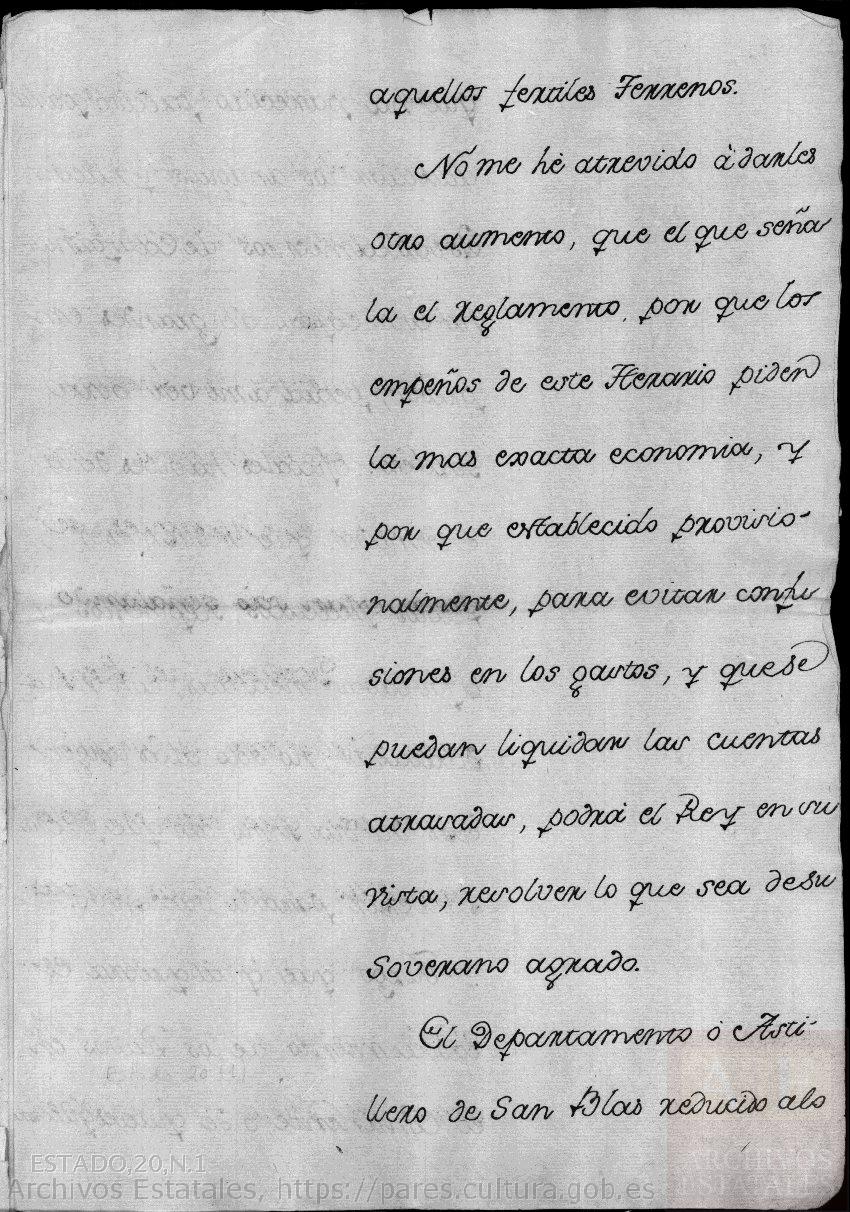 aquellos fertiles Terrenos.
No me hè atrevido à darles
otro aumento, que el que seña
la el Reglamento, por que los
empeños de este Herario piden
la mas exacta economia, y
por que establecido provisio-
nalmente, para evitar confu
siones en los gastos, y que se
puedan liquidar las cuentas
atrasadas, podrà el Rey en su
vista, resolver lo que sea de su
Soverano agrado.
El Departamento ò Asti-
llero de San Blas reducido alo
ESTADO,20,N.1
Archivos Estatales, https://pares.cultura.gob.es
ARCHIVOS
ESTATALES